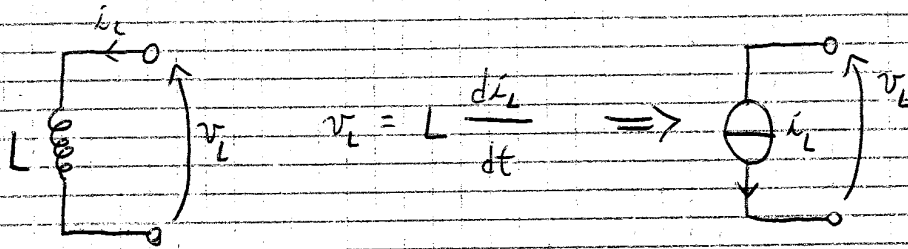 i_L
L
v_L
v_L = L di_L/dt ⟹
i_L
v_L